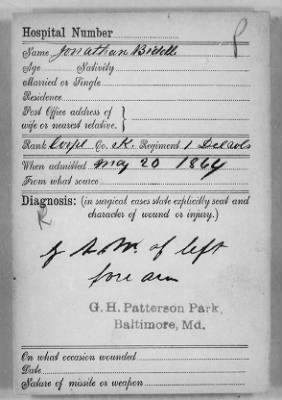 Hospital Number
Name Jonathan Biddle
Age Nativity
Married or Single
Residence
Post Office address of
wife or nearest relative.
Rank Corpl Co. K. Regiment 1 Del Vols
When admitted May 20 1864
From what source
Diagnosis: (in surgical cases state explicitly seat and
character of wound or injury.)
of left
fore arm
G. H. Patterson Park,
Baltimore, Md.
On what occasion wounded
Date
Nature of missile or weapon